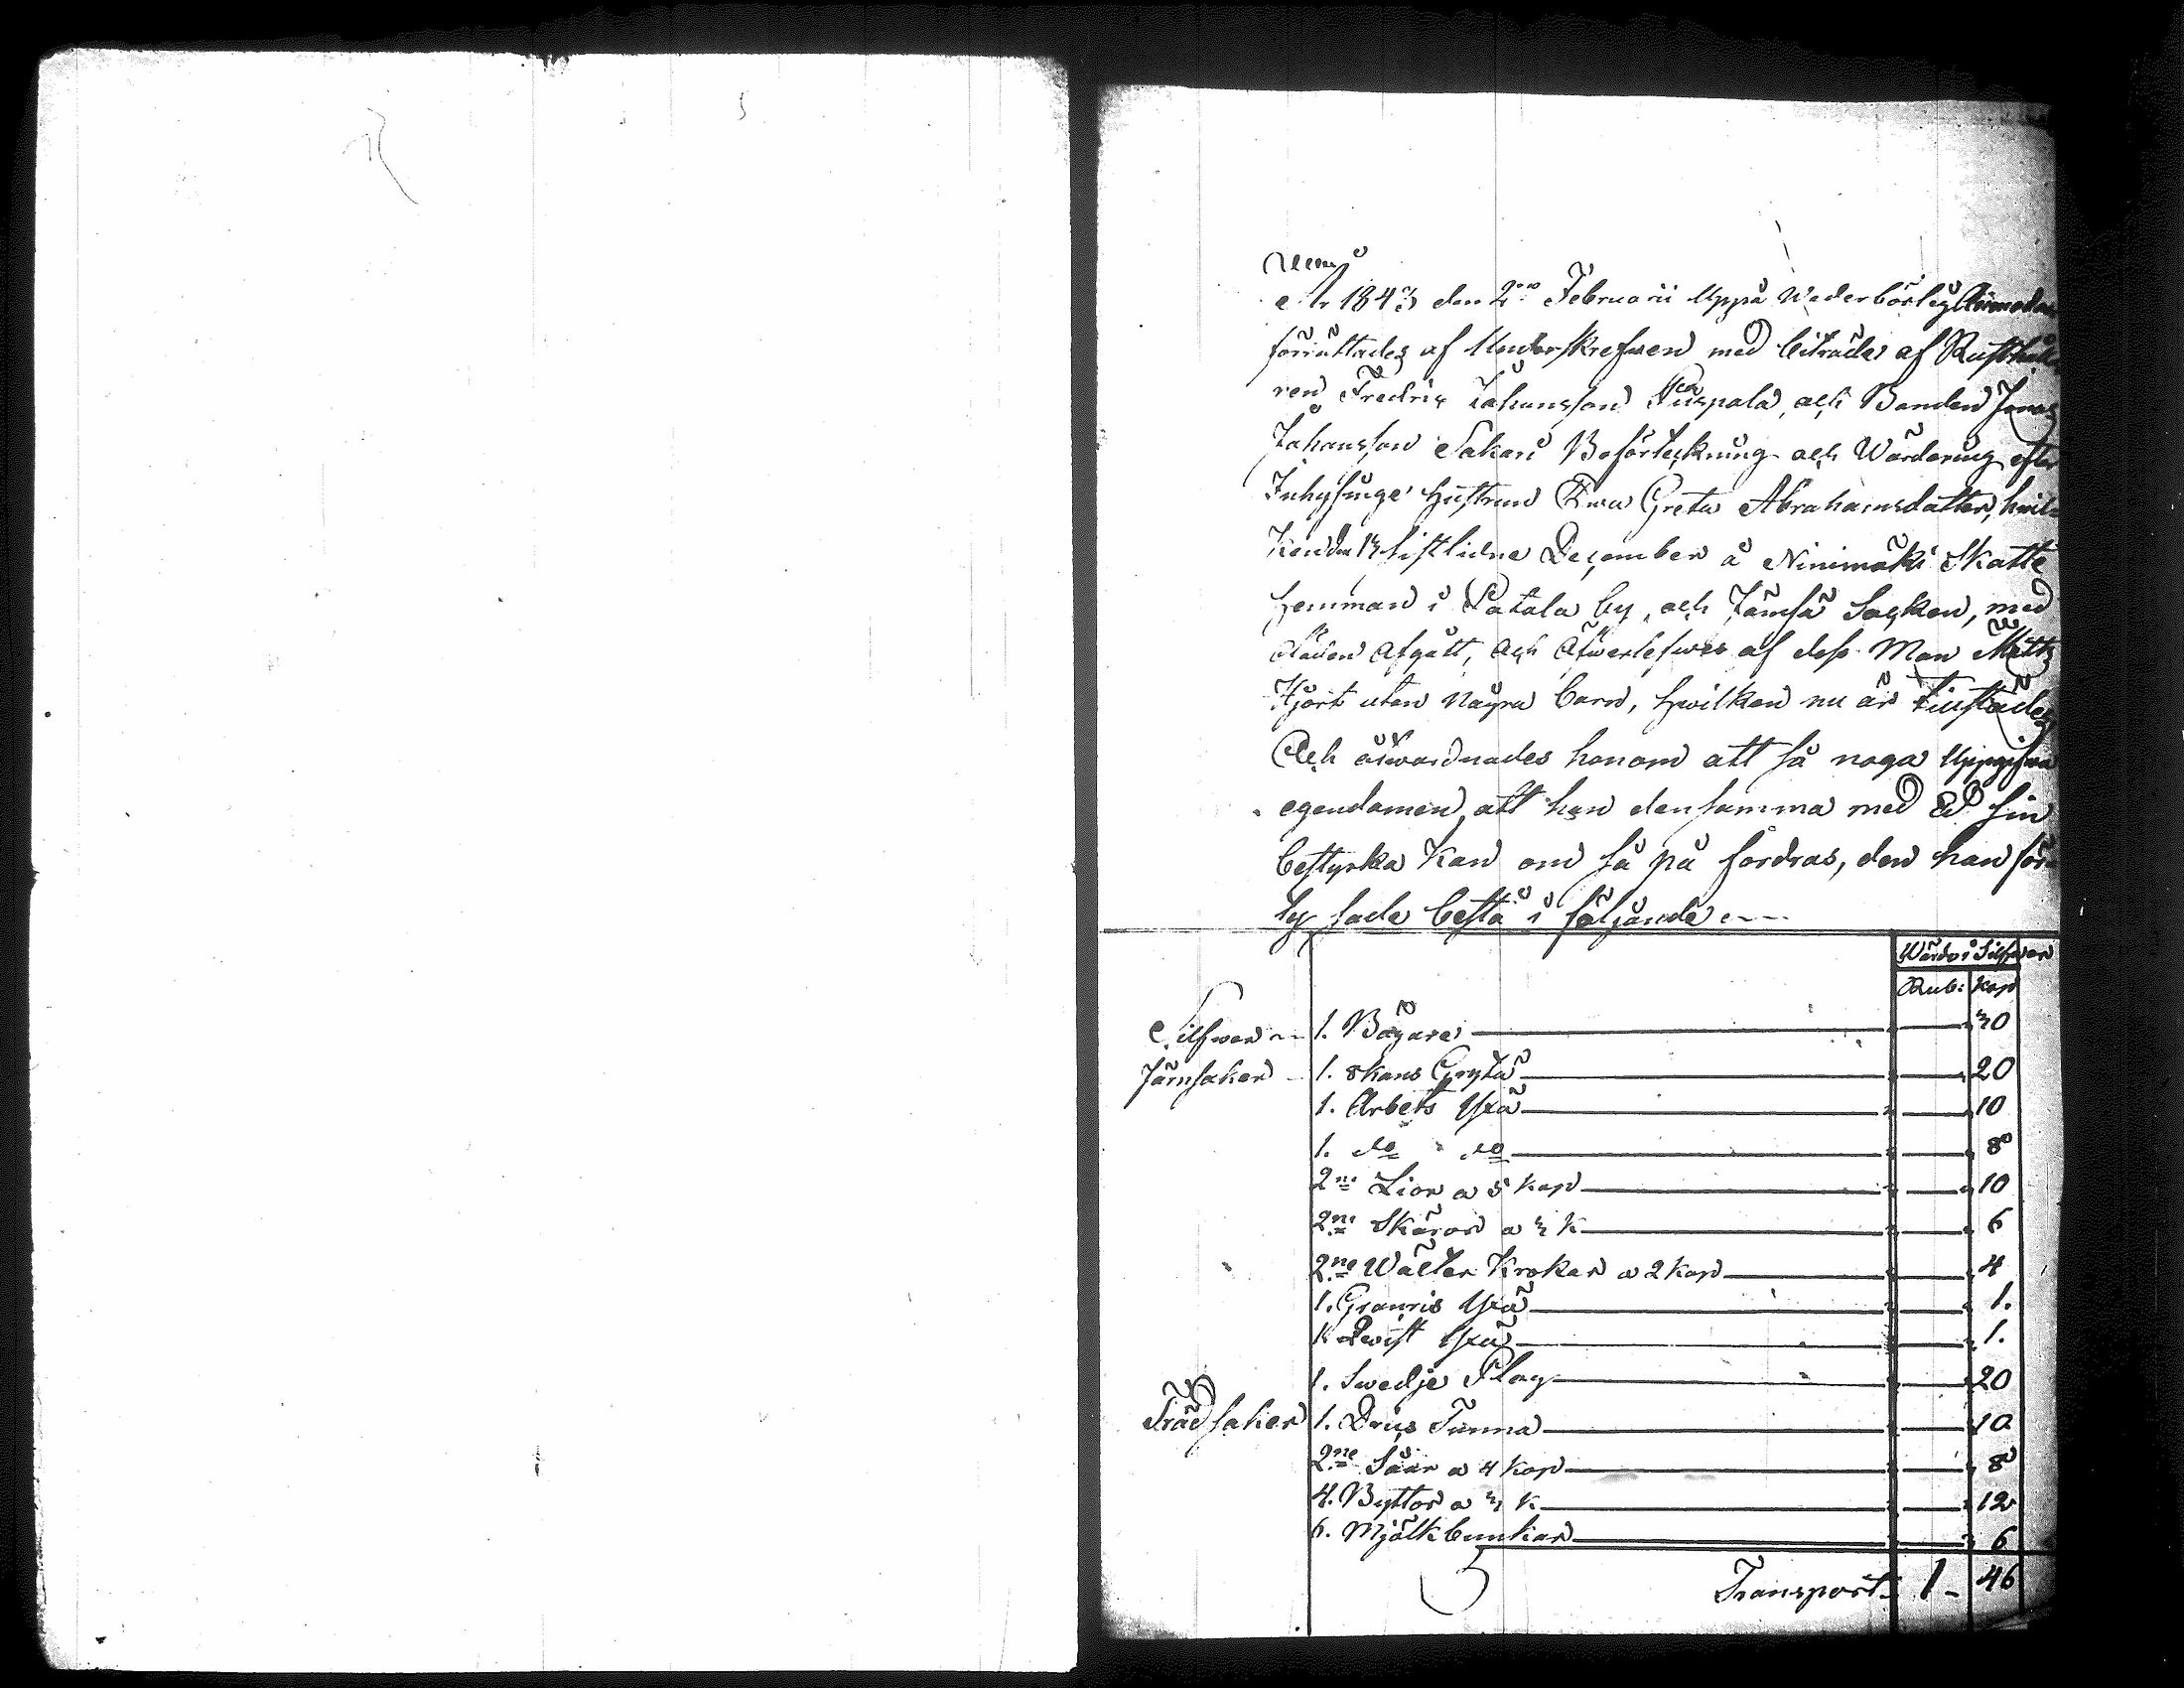 År 1843 den 2ne Februarii Uppå Wederbörlig Anmodan
förrättades af Underskrefwen med biträde af Rusthålla
ren Fredric Johansson Puspala, och Bonden Jonas
Johansson Sakari Beförteckning och Wärdering efter
Inhysinge hustrun Ewa Greta Abrahamsdotter, hwil-
ken den 13 sistlidne December å Ninimäki Skatte
hemman i Patala by, och Jämsä Socken, med
döden afgått, och öfwerlefwes af dess Man Matts
Hjort utan några barn, hwilken nu är tillstädes
Och åtwardnades honom att så noga Uppgifwa
egendomen, att han densamma med Ed sin
bestyrka kan om så på fordras, den han för-
ty sade bestå i följande
Wärde i Silfwer
Rub: Kop
Silfwer 1. Bägare 30
Järnsaker 1. Skans Gryta 20
1. Arbets Yxa 10
1. do do 8
2ne Lior a 5 kop 10
2ne Skäror a 3 K 6
2ne Wälter Krokar a 2 kop 4
1. Granris Yxa 1.
1. Qwist Yxa 1.
1. Swedje Plog 20
Trädsaker 1. Drics Tunna 10
2ne Såar a 4 kop 8
4. Byttor a 3 K 12
6. Mjölkbunkar 6
Transport 1 - 46